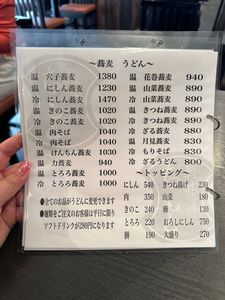 ～蕎麦 うどん～
温 穴子蕎麦 1380
温 にしん蕎麦 1230
冷 にしん蕎麦 1470
温 きのこ蕎麦 1020
冷 きのこ蕎麦 1020
温 肉そば 1040
冷 肉そば 1040
温 けんちん蕎麦 1030
温 力蕎麦 940
温 とろろ蕎麦 1000
冷 とろろ蕎麦 1000
温 花巻蕎麦 940
温 山菜蕎麦 890
冷 山菜蕎麦 890
温 きつね蕎麦 890
冷 きつね蕎麦 890
冷 ざる蕎麦 880
温 月見蕎麦 830
冷 もりそば 830
冷 ざるうどん 800
●全てのお品がうどんに変更できます
●麺類をご注文のお客様は平日に限り
ソフトドリンクが280円になります
～トッピング～
にしん 540 きつね揚げ 230
肉 350 山菜 180
きのこ 240 卵 130
とろろ 220 おろしにしん 750
餅 190 大盛り 270